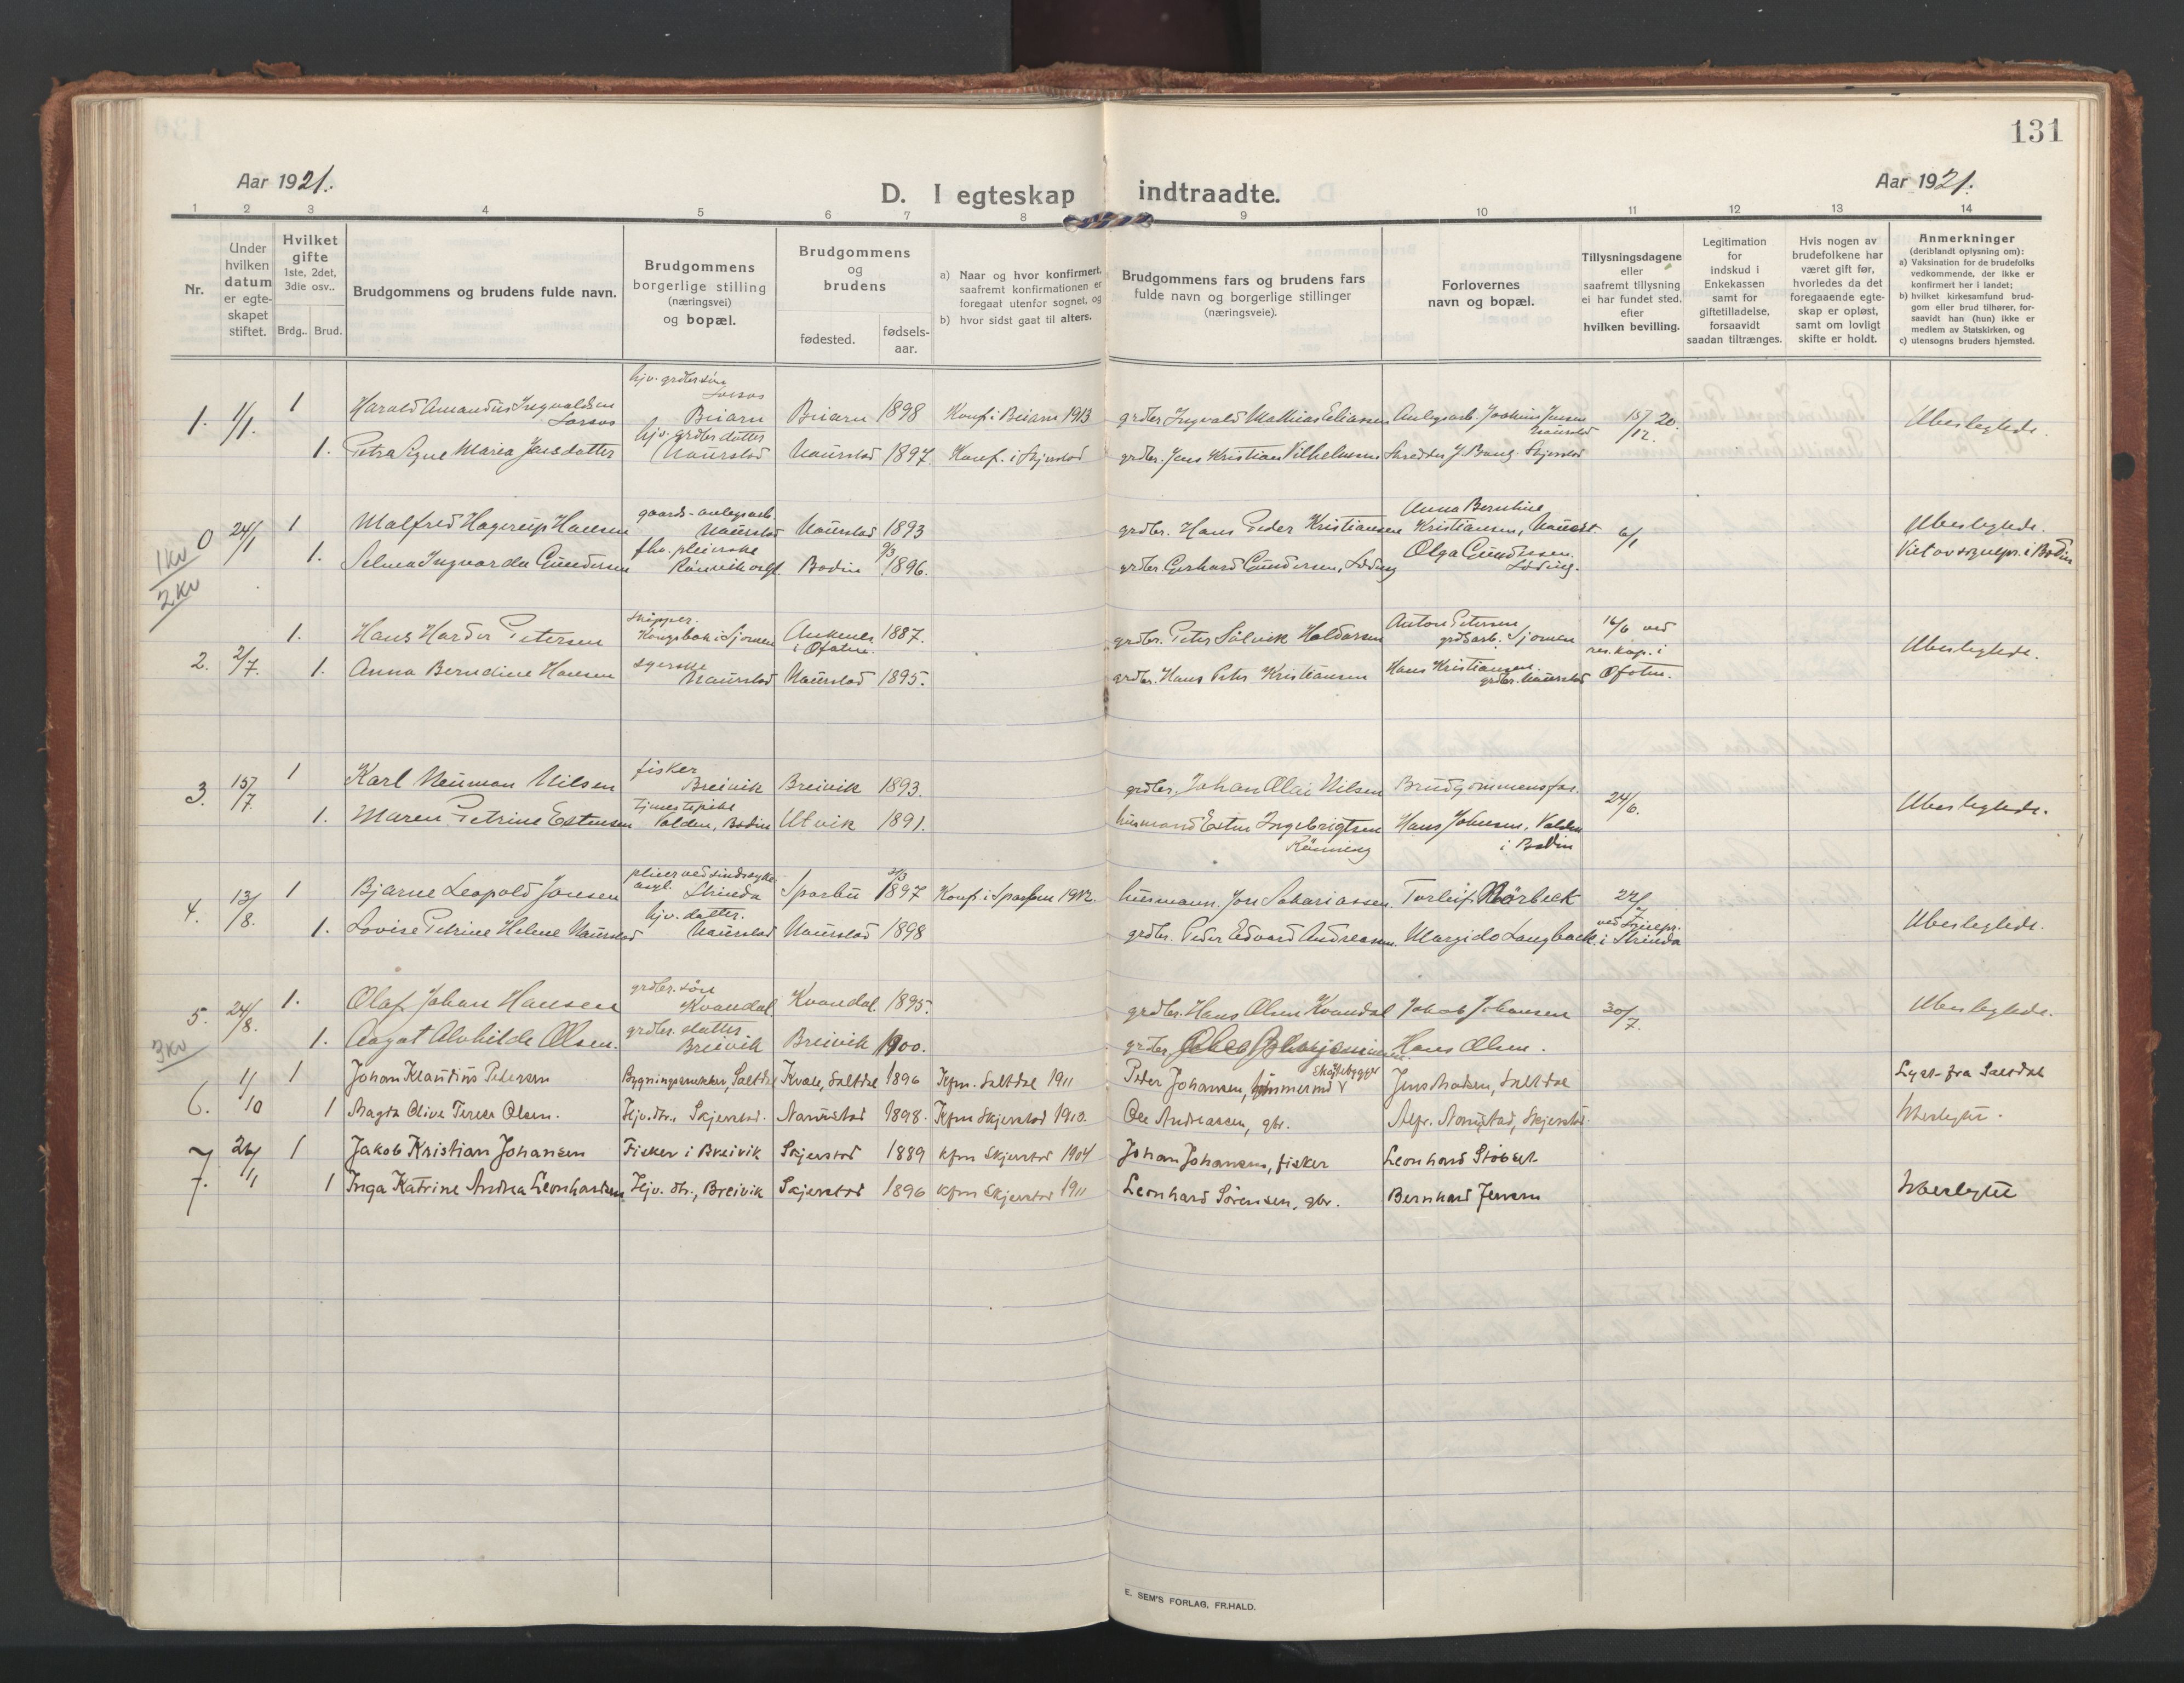 131
Aar 1921.
D. I egteskap indtraadte.
Aar 1921.
1 2 3 4 5 6 7 8 9 10 11 12 13 14
Nr.
Under hvilken datum er egteskapet stiftet.
Hvilket gifte 1ste, 2det, 3die osv..
Brdg.. Brud.
Brudgommens og brudens fulde navn.
Brudgommens borgerlige stilling (næringsvei) og bopæl.
Brudgommens og brudens
fødested. fødselsaar.
a) Naar og hvor konfirmert, saafremt konfirmationen er foregaat utenfor sognet, og
b) hvor sidst gaat til alters.
Brudgommens fars og brudens fars fulde navn og borgerlige stillinger (næringsveie).
Forlovernes navn og bopæl.
Tillysningsdagene eller saafremt tillysning ei har fundet sted, efter hvilken bevilling.
Legitimation for indskud i Enkekassen samt for giftetilladelse, forsaavidt saadan tiltrænges.
Hvis nogen av brudefolkene har været gift før, hvorledes da det foregaaende egteskap er opløst, samt om lovligt skifte er holdt.
Anmerkninger (deriblandt oplysning om):
a) Vaksination for de brudefolks vedkommende, der ikke er konfirmert her i landet;
b) hvilket kirkesamfund brudgom eller brud tilhører, forsaavidt han (hun) ikke er medlem av Statskirken, og
c) utensogns bruders hjemsted.
1. 1/1. 1 Harald Amandus Ingvaldsen Beiarn Beiarn 1898 Konf. i Beiarn 1913 grdbr. Ingvald Mathias Eliassen Anlegsarb. Joakim Jensen 15/12. 20. Ubeslegtede.
1. Petra Signe Maria Jensdatter hjv. grdbr. datter Naurstad Naurstad 1897 Konf. i Skjerstad grdbr. Jens Kristian Vilhelmsen Skredder J. Bang. Skjerstad
1 kv
2 kv
0 24/1 1 Malfred Hagerup Hansen gaards-anlegsarb. Naurstad Naurstad 1893 grdbr. Hans Peder Kristiansen Anna Berntine Kristiansen, Naurst. 6/1 Ubeslegtede.
1. Selma Ingvarda Gundersen Rönvik asyl Bodin 1896. grdbr. Gerhard Gundersen, Löding Olga Gundersen. Löding. Viet av sognepr. i Bodin
2. 2/7. 1. Hans Harder Petersen skipper. Kongsbak i Sjomen Ankenes i Ofoten. 1887. grdbr. Peter Sölvik Haldorsen Anton Petersen grdbarb. Sjomen 16/6 ved res. kap. i Ofoten. Ubeslegtede.
1. Anna Berndine Hansen syerske Naurstad Naurstad 1895. grdbr. Hans Peter Kristiansen Hans Kristiansen. grdbr. Naurstad
3. 15/7 1 Karl Neuman Nilsen fisker Breivik Breivik 1893. grdbr. Johan Olai Nilsen Brudgommens far. 24/6. Ubeslegtede.
1. Maren Petrine Estensen tjenestepike Valden, Bodin Utvik 1891. husmand Esten Ingebrigtsen Rönning Hans Johnsen, Valden i Bodin
4. 13/8. 1 Bjarne Leopold Jonsen pleier ved sindssyke asyl. Strinda Sparbu 1897 Konf. i Sparbu 1912. husmann. Jon Sakariassen. Torleif Nörbeck ved sognepr. i Strinda Ubeslegtede.
1. Lovise Petrine Helene Naurstad hjv. datter. Naurstad Naurstad 1898 grdbr. Peder Edvard Andreassen. Margido Langback.
5. 24/8. 1. Olaf Johan Hansen grdbr. sön Kvandal Kvandal. 1895. grdbr. Hans Olsen Kvandal Jakob Johansen 30/7. Ubeslegtede.
3 kv
1. Aagot Alvhilde Olsen. grdbr. datter. Breivik Breivik 1900. grdbr. Hans Olsen.
6. 1/10 1 Johan Klaudius Pedersen Bygningssnekker, Saltdal Kvale, Saltdal 1896 Kfm. Saltdal 1911 Peder Johansen, Skøitebygger Jens Madsen, Saltdal Lyst fra Saltdal
1 Magda Olive Terese Olsen. Hjv. dtr., Skjerstad. Naurstad 1898. Kfm Skjerstad 1913. Ole Andreassen, gbr. Alfr. Naurstad, Skjerstad. Ubeslegtet.
7. 26/11 1 Jakob Kristian Johansen Fisker i Breivik Skjerstad 1889 Kfm Skjerstad 1904 Johan Johansen, fisker Leonhard Støbsek
1 Inga Katrine Andrea Leonhardsen Hjv. dtr., Breivik Skjerstad 1896 Kfm Skjerstad 1911 Leonhard Sörensen, gbr. Bernhard Jensen Ubeslegtet
E. SEM'S FORLAG, FR.HALD.